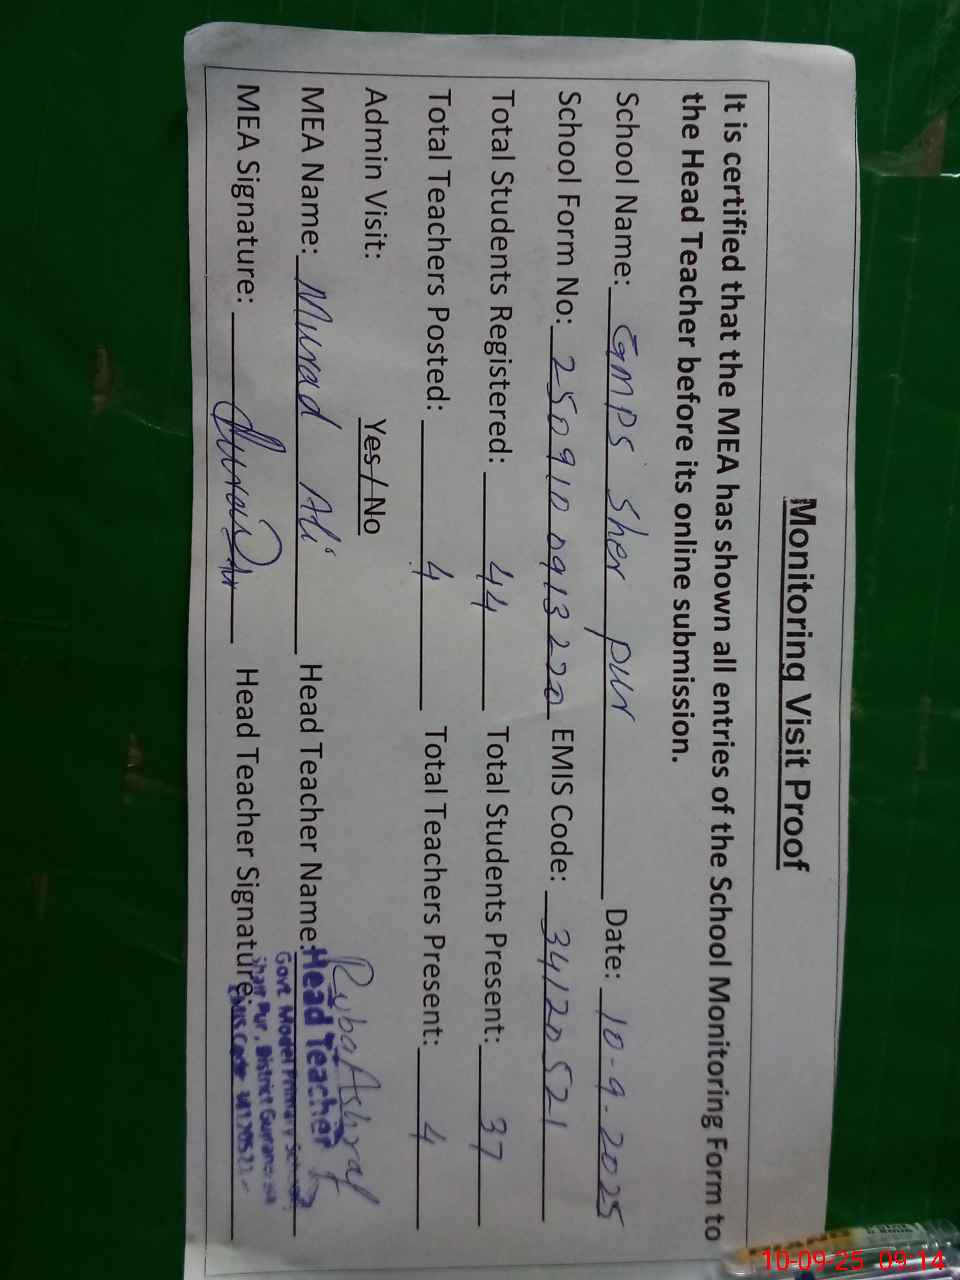 Monitoring Visit Proof
It is certified that the MEA has shown all entries of the School Monitoring Form to
the Head Teacher before its online submission.
School Name: GMPS Sher pur Date: 10-9-2025
School Form No: 250910 0913220 EMIS Code: 34120521
Total Students Registered: 44 Total Students Present: 37
Total Teachers Posted: 4 Total Teachers Present: 4
Admin Visit: Yes / No
MEA Name: Murad Ali Head Teacher Name: Ruba Ashraf
MEA Signature: Head Teacher Signature:
Head Teacher
Govt. Model Primary School
Pur, District
EMIS Code 34120521
10-09-25 09:14